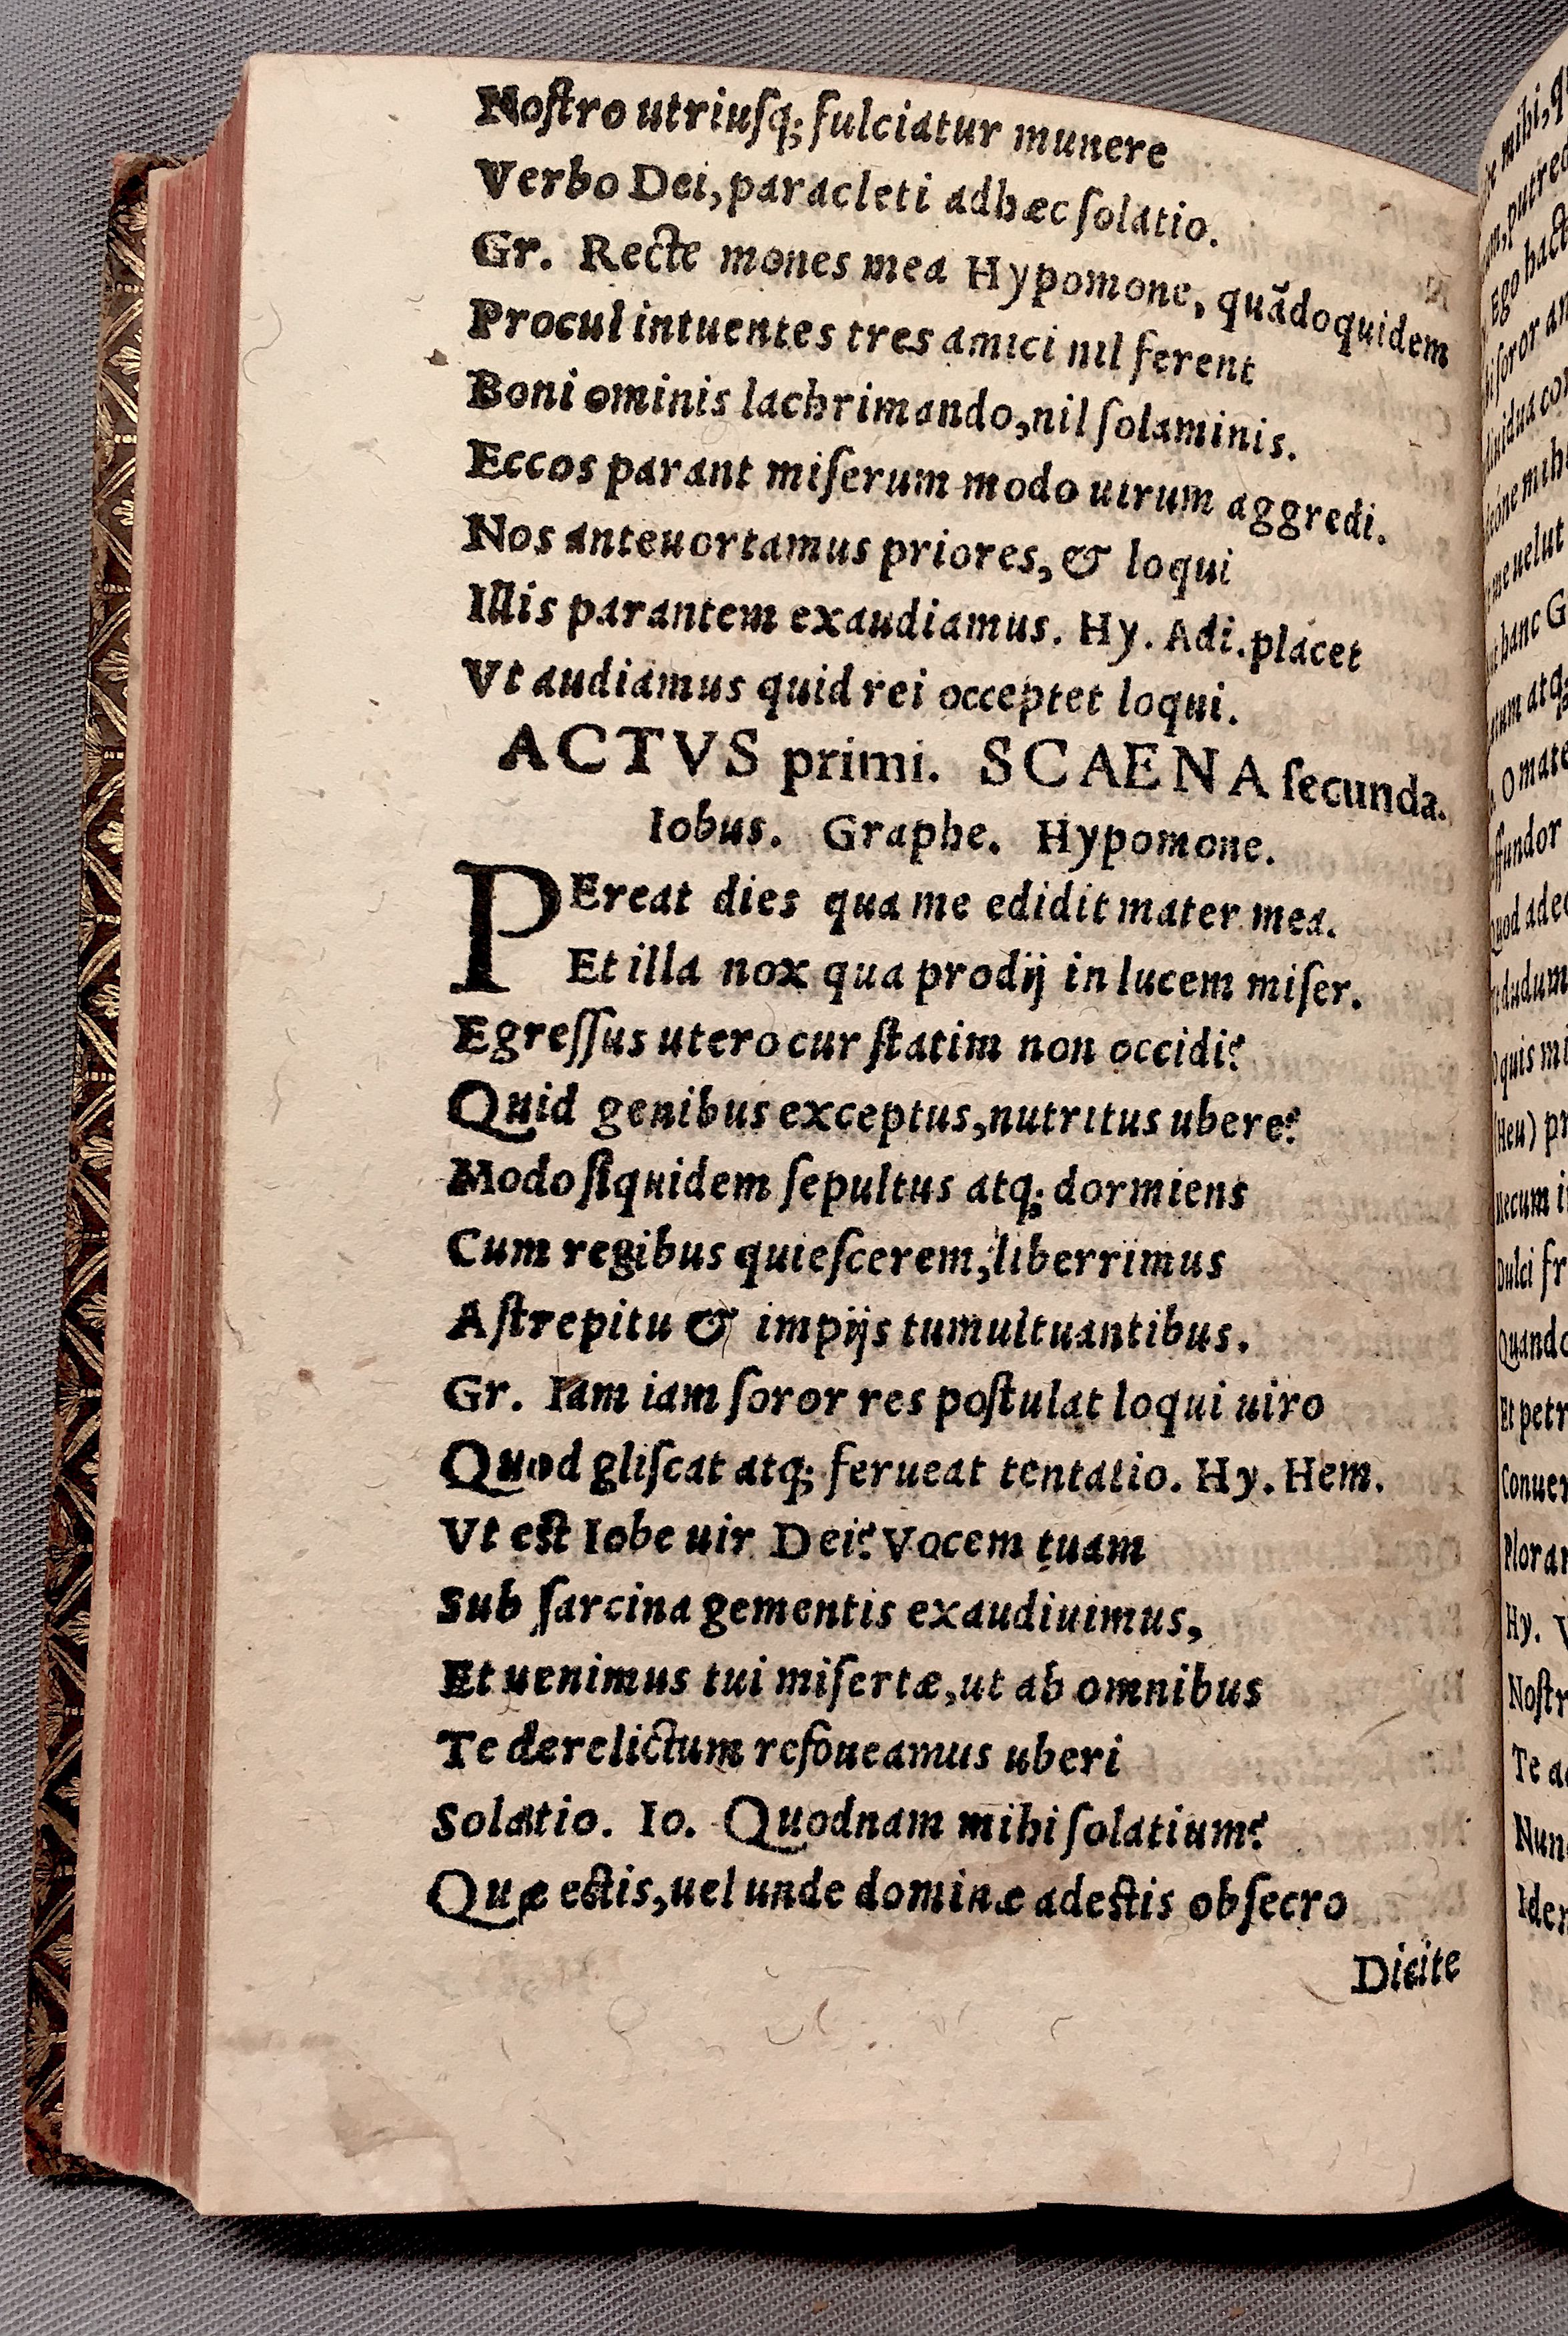 Nostro utriusq; fulciatur munere
Verbo Dei, paracleti adhæc solatio.
Gr. Recte mones mea Hypomone, quãdoquidem
Procul intuentes tres amici nil ferent
Boni ominis lachrimando, nil solaminis.
Eccos parant miserum modo uirum aggredi.
Nos anteuortamus priores, & loqui
Illis parantem exaudiamus. Hy. Adi. placet
Vt audiamus quid rei occeptet loqui.
ACTVS primi. SCAENA secunda.
Iobus. Graphe. Hypomone.
PEreat dies qua me edidit mater mea.
Et illa nox qua prodij in lucem miser.
Egressus utero cur statim non occidi?
Quid genibus exceptus, nutritus ubere?
Modo siquidem sepultus atq; dormiens
Cum regibus quiescerem, liberrimus
A strepitu & impijs tumultuantibus.
Gr. Iam iam soror res postulat loqui uiro
Quod gliscat atq; ferueat tentatio. Hy. Hem.
Vt est Iobe uir Dei? Vocem tuam
Sub sarcina gementis exaudiuimus,
Et uenimus tui misertæ, ut ab omnibus
Te derelictum refoueamus uberi
Solatio. Io. Quodnam mihi solatium?
Quæ estis, uel unde dominæ adestis obsecro
Dicite
mihi,
putred
Ego hact
soror
me uelut
hanc G
atq;
O mate
dudum
quis
(Heu)
Mecum
Dulci
Quando
Et petr
Conuer
Plorar
Hy.
Nostr
Te
Nun